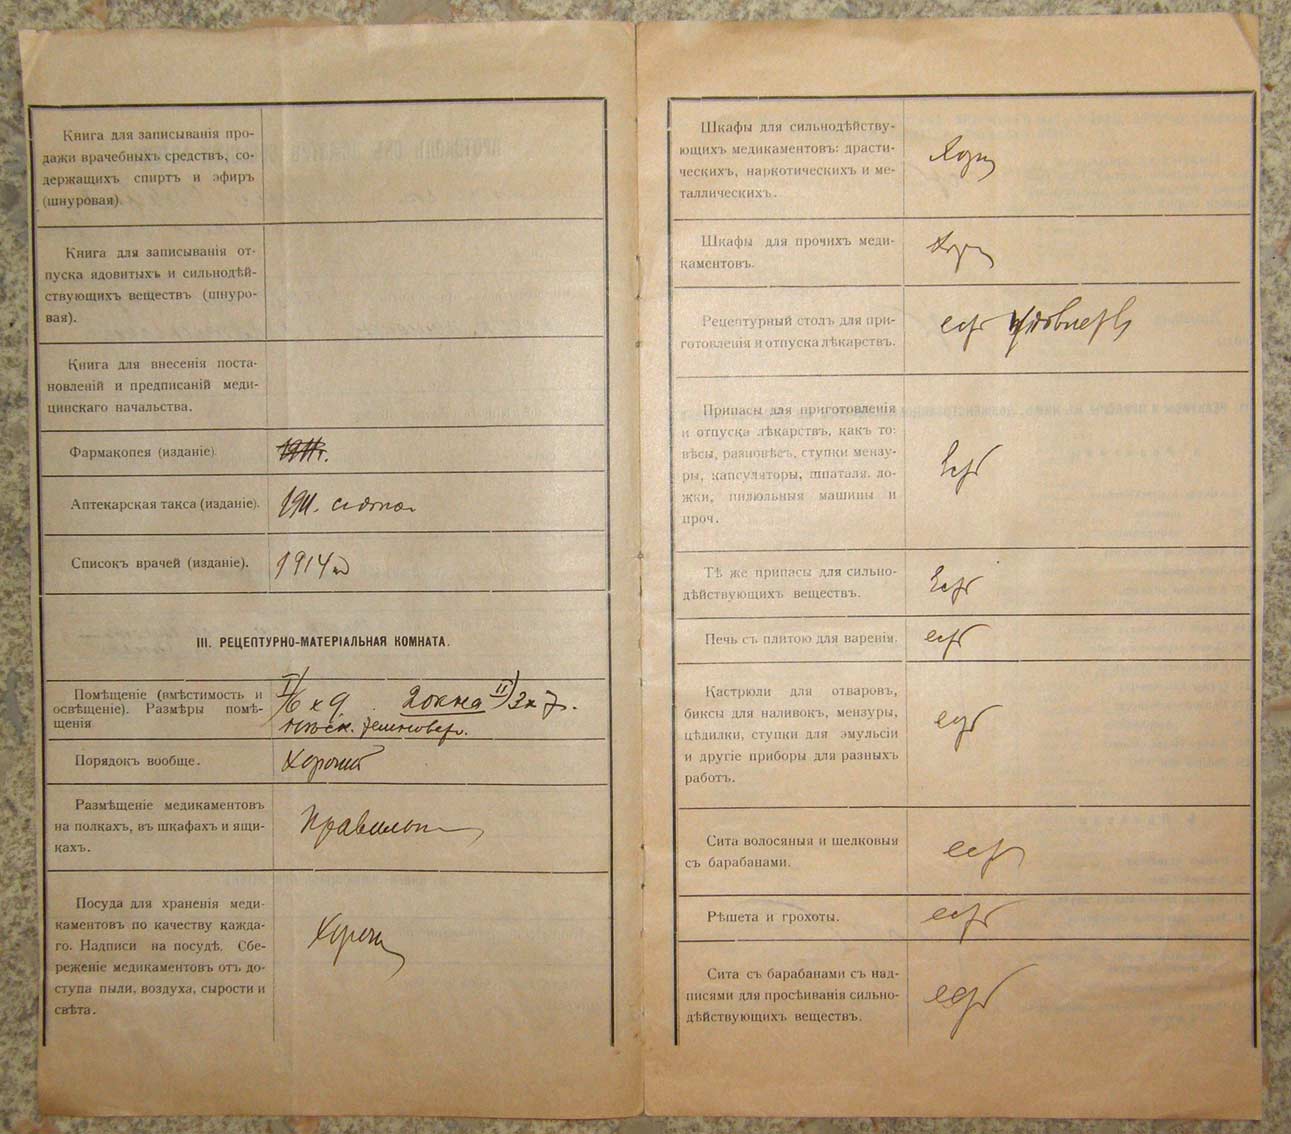 Книга для записыванія про-
дажи врачебныхъ средствъ, со-
держащихъ спиртъ и эфиръ
(шнуровая).
Книга для записыванія от-
пуска ядовитыхъ и сильнодѣй-
ствующихъ веществъ (шнуро-
вая).
Книга для внесенія поста-
новленій и предписаній меди-
цинскаго начальства.
Фармакопея (изданіе).
1911г.
Аптекарская такса (изданіе).
1911.
Списокъ врачей (изданіе).
1914
III. РЕЦЕПТУРНО-МАТЕРІАЛЬНАЯ КОМНАТА.
Помѣщеніе (вмѣстимость и
освѣщеніе). Размѣры помѣ-
щенія
I/ 6 х 9. 2 окна II/ 3 х 7.
Порядокъ вообще.
Хорошій
Размѣщеніе медикаментовъ
на полкахъ, въ шкафахъ и ящи-
кахъ.
Правильн
Посуда для храненія меди-
каментовъ по качеству каждa-
го. Надписи на посудѣ. Сбе-
реженіе медикаментовъ отъ до-
ступа пыли, воздуха, сырости и
свѣта.
Хорош
Шкафы для сильнодѣйству-
ющихъ медикаментовъ: драсти-
ческихъ, наркотическихъ и ме-
таллическихъ.
Хор
Шкафы для прочихъ меди-
каментовъ.
Хор
Рецептурный столъ для при-
готовленія и отпуска лѣкарствъ.
есть удовлетв
Припасы для приготовленія
и отпуска лѣкарствъ, какъ то:
вѣсы, разновѣсъ, ступки мензу-
ры, капсуляторы, шпаталя, ло-
жки, пилюльныя машины и
проч.
Есть
Тѣ же припасы для сильно-
дѣйствующихъ веществъ.
Есть
Печь съ плитою для варенія.
есть
Кастрюли для отваровъ,
биксы для наливокъ, мензуры,
цѣдилки, ступки для эмульсіи
и другіе приборы для разныхъ
работъ.
есть
Сита волосяныя и шелковыя
съ барабанами.
есть
Рѣшета и грохоты.
есть
Сита съ барабанами съ над-
писями для просѣиванія сильно-
дѣйствующихъ веществъ.
есть